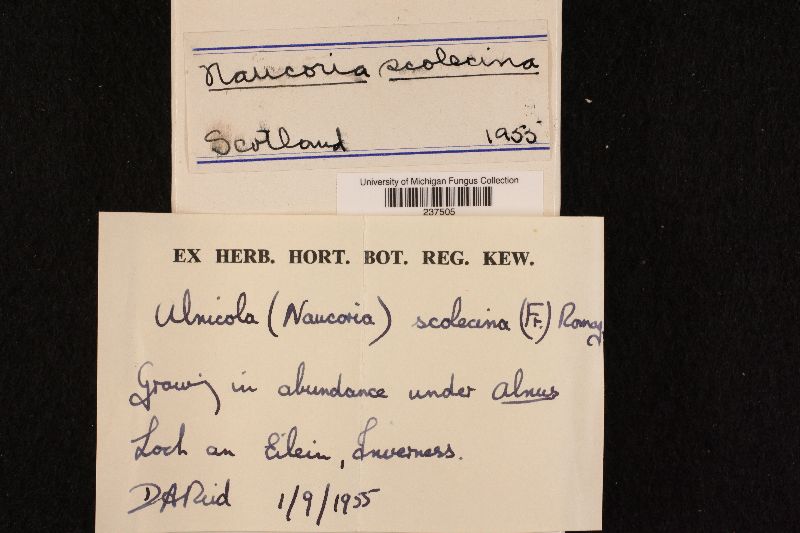 Naucoria scolecina
Scotland 1955
University of Michigan Fungus Collection
237505
EX HERB. HORT. BOT. REG. KEW.
Alnicola (Naucoria) scolecina (Fr.) Romag
Growing in abundance under Alnus
Loch an Eilein, Inverness.
DAReid 1/9/1955